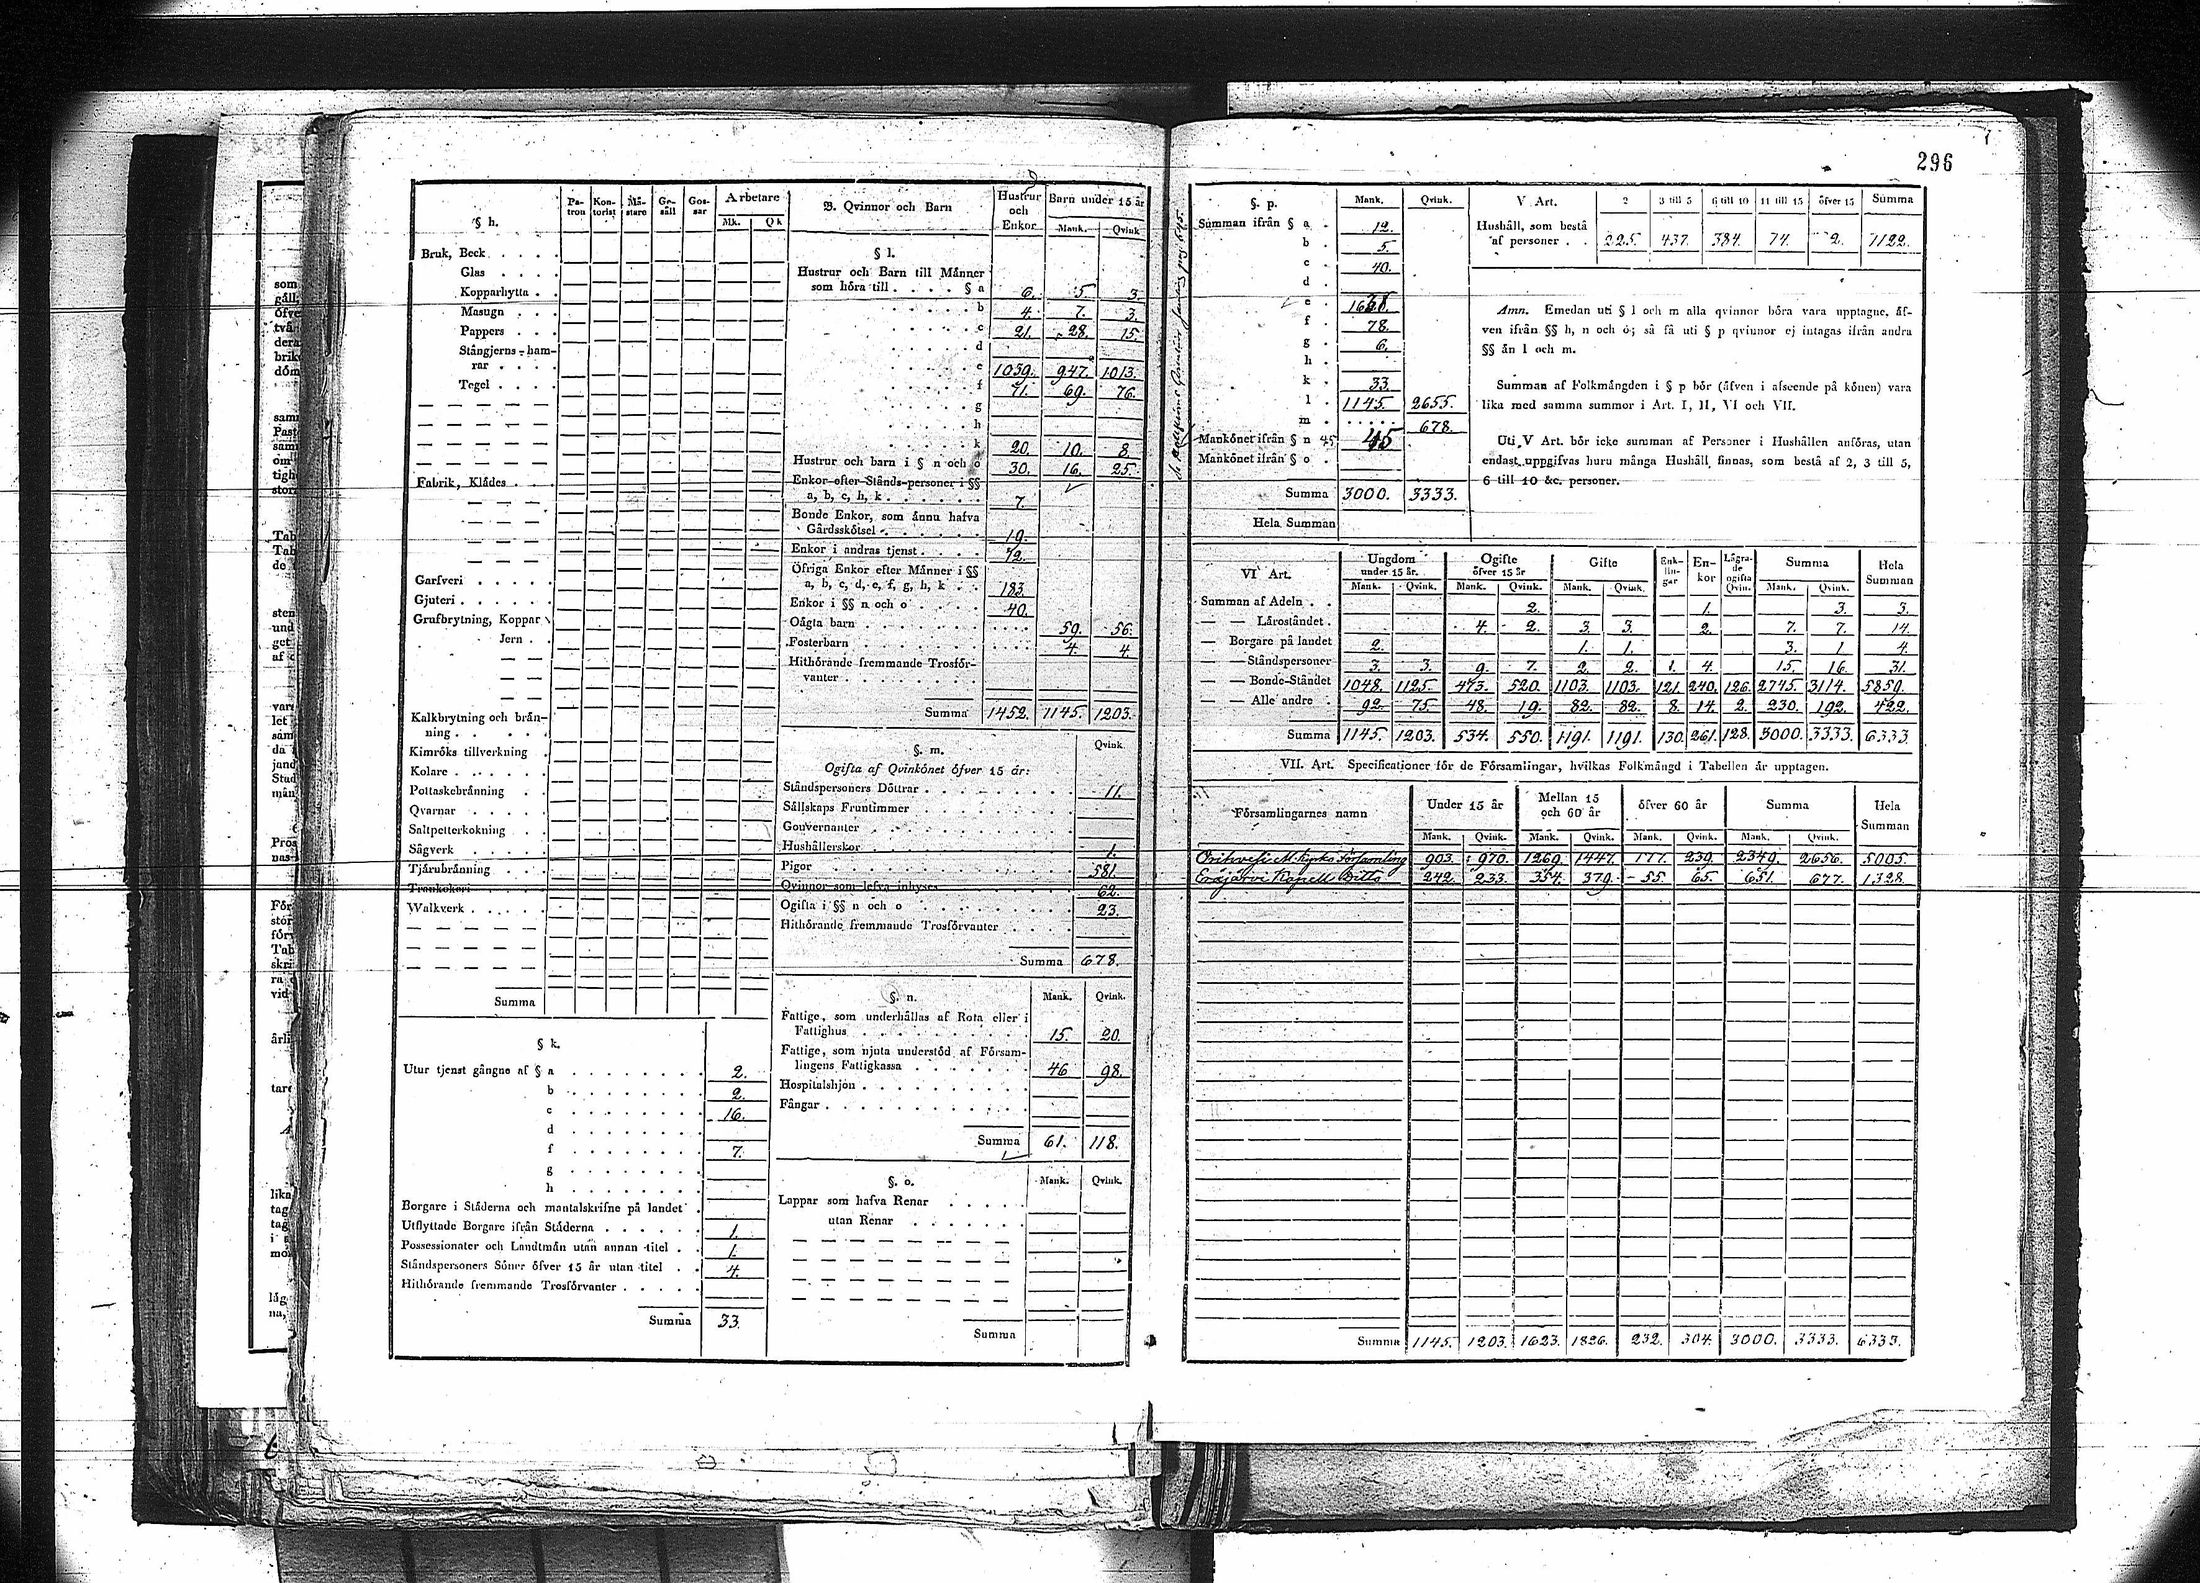 296
§ h.
Pa-tron Kon-torist Må-stare Ge-säll Gos-sar Arbetare
Mk. Qk
Bruk, Beck
Glas
Kopparhytta
Masugn
Pappers
Stångjerns-ham-
rar
Tegel
Fabrik, Klådes
Garfveri
Gjuteri
Grufbrytning, Koppar
Jern
Kalkbrytning och brån-
ning
Kimröks tillverkning
Kolare
Pottaskebrånning
Qvarnar
Saltpetterkokning
Sågverk
Tjårubrånning
Trankokeri
Walkverk
Summa
§ k.
Utur tjenst gångne af § a 2.
b 2.
c 16.
d
f 7.
g
h
Borgare i Ståderna och mantalskrifne på landet
Utflyttade Borgare ifrån Ståderna 1.
Possessionater och Landtmån utan annan titel 1.
Ståndspersoners Söner öfver 15 år utan titel 4.
Hithörande fremmande Trosförvanter
Summa 33.
B. Qvinnor och Barn
Hustrur och Enkor Barn under 15 år
Mank. Qvink
§ l.
Hustrur och Barn till Månner
som höra till § a 6. 5. 3.
b 4. 7. 3.
c 21. 28. 15.
d
e 1039. 947. 1013.
f 71. 69. 76.
g
h
k 20. 10. 8.
Hustrur och barn i § n och o 30. 16. 25.
Enkor efter Stånds-personer i §§
a, b, c, h, k 7.
Bonde Enkor, som ånnu hafva
Gårdsskötsel 19.
Enkor i andras tjenst 12.
Öfriga Enkor efter Månner i §§
a, b, c, d, e, f, g, h, k 183.
Enkor i §§ n och o 40.
Oågta barn 59. 56.
Fosterbarn 4. 4.
Hithörande fremmande Trosför-
vanter
Summa 1452. 1145. 1203.
§. m. Qvink.
Ogifta af Qvinkönet öfver 15 år:
Ståndspersoners Döttrar 11.
Sällskaps Fruntimmer
Gouvernanter
Hushållerskor 1.
Pigor 581.
Qvinnor som lefva inhyses 62.
Ogifta i §§ n och o 23.
Hithörande fremmande Trosförvanter
Summa 678.
§. n. Mank. Qvink.
Fattige, som underhållas af Rota eller i
Fattighus 15. 20.
Fattige, som njuta understöd af Församlingens
Fattigkassa 46 98.
Hospitalshjon
Fångar
Summa 61. 118.
§. o. Mank. Qvink.
Lappar som hafva Renar
utan Renar
Summa
§. p. Mank. Qvink.
Summan ifrån § a 12.
b 5.
c 40.
d
e
f 78.
g 6.
h
k 33.
l 1145. 2655.
m 678.
Mankönet ifrån § n 45 45
Mankönet ifrån § o
Summa 3000. 3333.
Hela Summan
V Art. 2 3 till 5 6 till 10 11 till 15 öfver 15 Summa
Hushåll, som bestå
af personer 225. 437. 384. 74. 2. 1122.
Anm. Emedan uti § l och m alla qvinnor böra vara upptagne, åf-
ven ifrån §§ h, n och o; så få uti § p qvinnor ej intagas ifrån andra
§§ ån l och m.
Summan af Folkmångden i § p bör (åfven i afseende på könen) vara
lika med samma summor i Art. I, II, VI och VII.
Uti V Art. bör icke summan af Personer i Hushållen anföras, utan
endast uppgifvas huru många Hushåll finnas, som bestå af 2, 3 till 5,
6 till 10 &c. personer.
VI Art. Ungdom under 15 år. Ogifte öfver 15 år Gifte Enk-lin-gar En-kor Lågra-de ogifta Qvin. Summa Hela Summan
Mank. Qvink. Mank. Qvink. Mank. Qvink. Mank. Qvink.
Summan af Adeln 2. 1. 3. 3.
— — Låroståndet 4. 2. 3. 3. 2. 7. 7. 14.
— Borgare på landet 2. 1. 1. 3. 1. 4.
— — Ståndspersoner 3. 3. 9. 7. 2. 2. 1. 4. 15. 16. 31.
— — Bonde-Ståndet 1048. 1125. 473. 520. 1103. 1103. 121. 240. 126. 2745. 3114. 5859.
— — Alle andre 92. 75. 48. 19. 82. 82. 8. 14. 2. 230. 192. 422.
Summa 1145. 1203. 534. 550. 1191. 1191. 130. 261. 128. 3000. 3333. 6333.
VII. Art. Specificationer för de Församlingar, hvilkas Folkmångd i Tabellen är upptagen.
Församlingarnes namn Under 15 år Mellan 15 och 60 år öfver 60 år Summa Hela Summan
Mank. Qvink. Mank. Qvink. Mank. Qvink. Mank. Qvink.
Orihvesi M. Kyrko Församling 903. 970. 1269. 1447. 177. 239. 2349. 2656. 5005.
Eräjärvi Kapell Ditto 242. 233. 354. 379. 55. 65. 651. 677. 1328.
Summa 1145. 1203. 1623. 1826. 232. 304 3000. 3333. 6333.